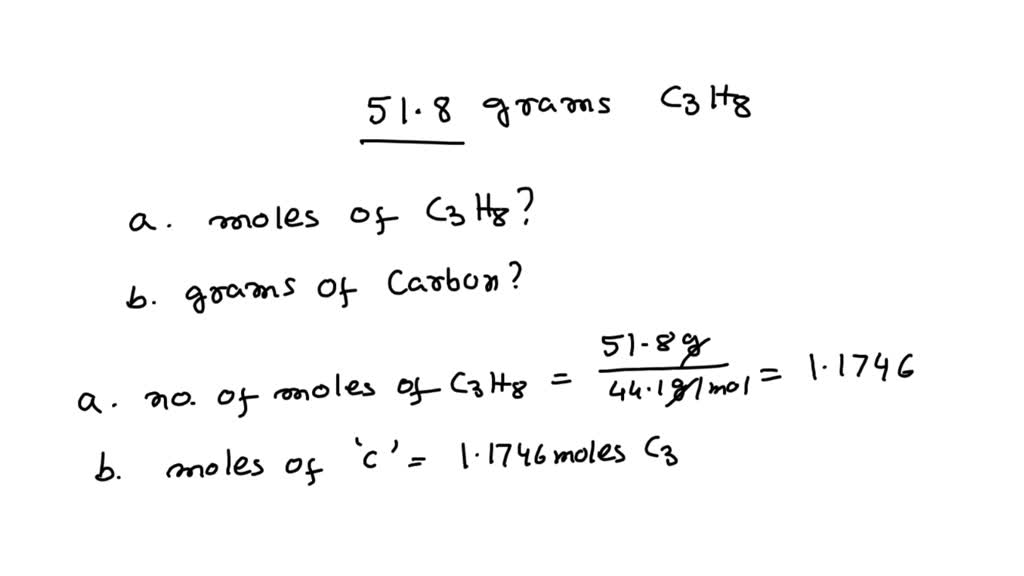 51.8 grams C3H8
a. moles of C3H8?
b. grams of Carbon?
a. no. of moles of C3H8 = 51.8g / 44.1g/mol = 1.1746
b. moles of 'c' = 1.1746 moles C3